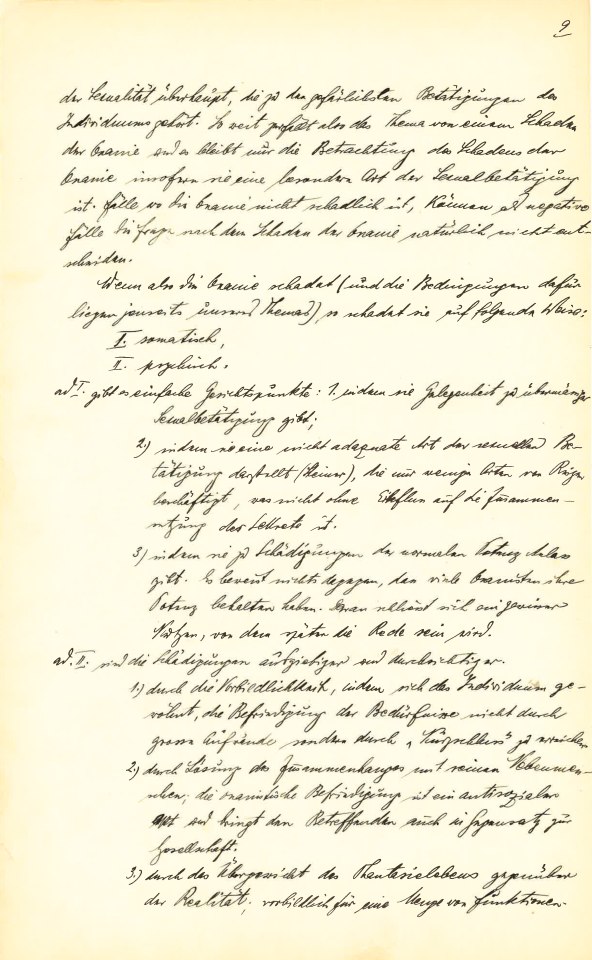 9
der Sexualität überhaupt, die zu den gefärlichsten Betätigungen des
Individuums gehört. So weit zerfällt also das Thema von einem Schaden
der Onanie und es bleibt nur die Betrachtung des Schadens der
Onanie insofern sie eine besondere Art der Sexualbetätigung
ist. Fälle wo die Onanie nicht schädlich ist, können als negative
Fälle die Frage nach dem Schaden der Onanie natürlich nicht ent-
scheiden.
Wenn also die Onanie schadet (und die Bedingungen dafür
liegen jenseits unseres Themas) so schadet sie auf folgende Weise:
I. somatisch,
II. psychisch.
ad I. gibt es einfache Gesichtspunkte: 1. indem sie Gelegenheit zu übermässiger
Sexualbetätigung gibt;
2.) indem sie eine nicht adaequate Art der sexuellen Be-
tätigung darstellt (Steiner), die nur wenige Arten von Reizen
beschäftigt, was nicht ohne Einfluss auf die Zusammen-
setzung des Sekrets ist.
3) indem sie zu Schädigungen der normalen Potenz Anlass
gibt. Es beweist nichts dagegen, dass viele Onanisten ihre
Potenz behalten haben. Daran schliesst sich ein gewisser
Nutzen, von dem später die Rede sein wird.
ad. II. sind die Schädigungen ausgiebiger und durchsichtiger.
1.) durch die Vorbildlichkeit, indem sich das Individuum ge-
wöhnt, die Befriedigung der Bedürfnisse nicht durch
grosse Aufwände sondern durch „Kurzschluss" zu erreichen
2.) durch Lösung des Zusammenhanges mit seinen Nebenmen-
schen; die onanistische Befriedigung ist ein antisozialer
Akt und bringt den Betreffenden auch in Gegensatz zur
Gesellschaft.
3.) durch das Übergewicht des Phantasielebens gegenüber
der Realität; vorbildlich für eine Menge von Funktionen.